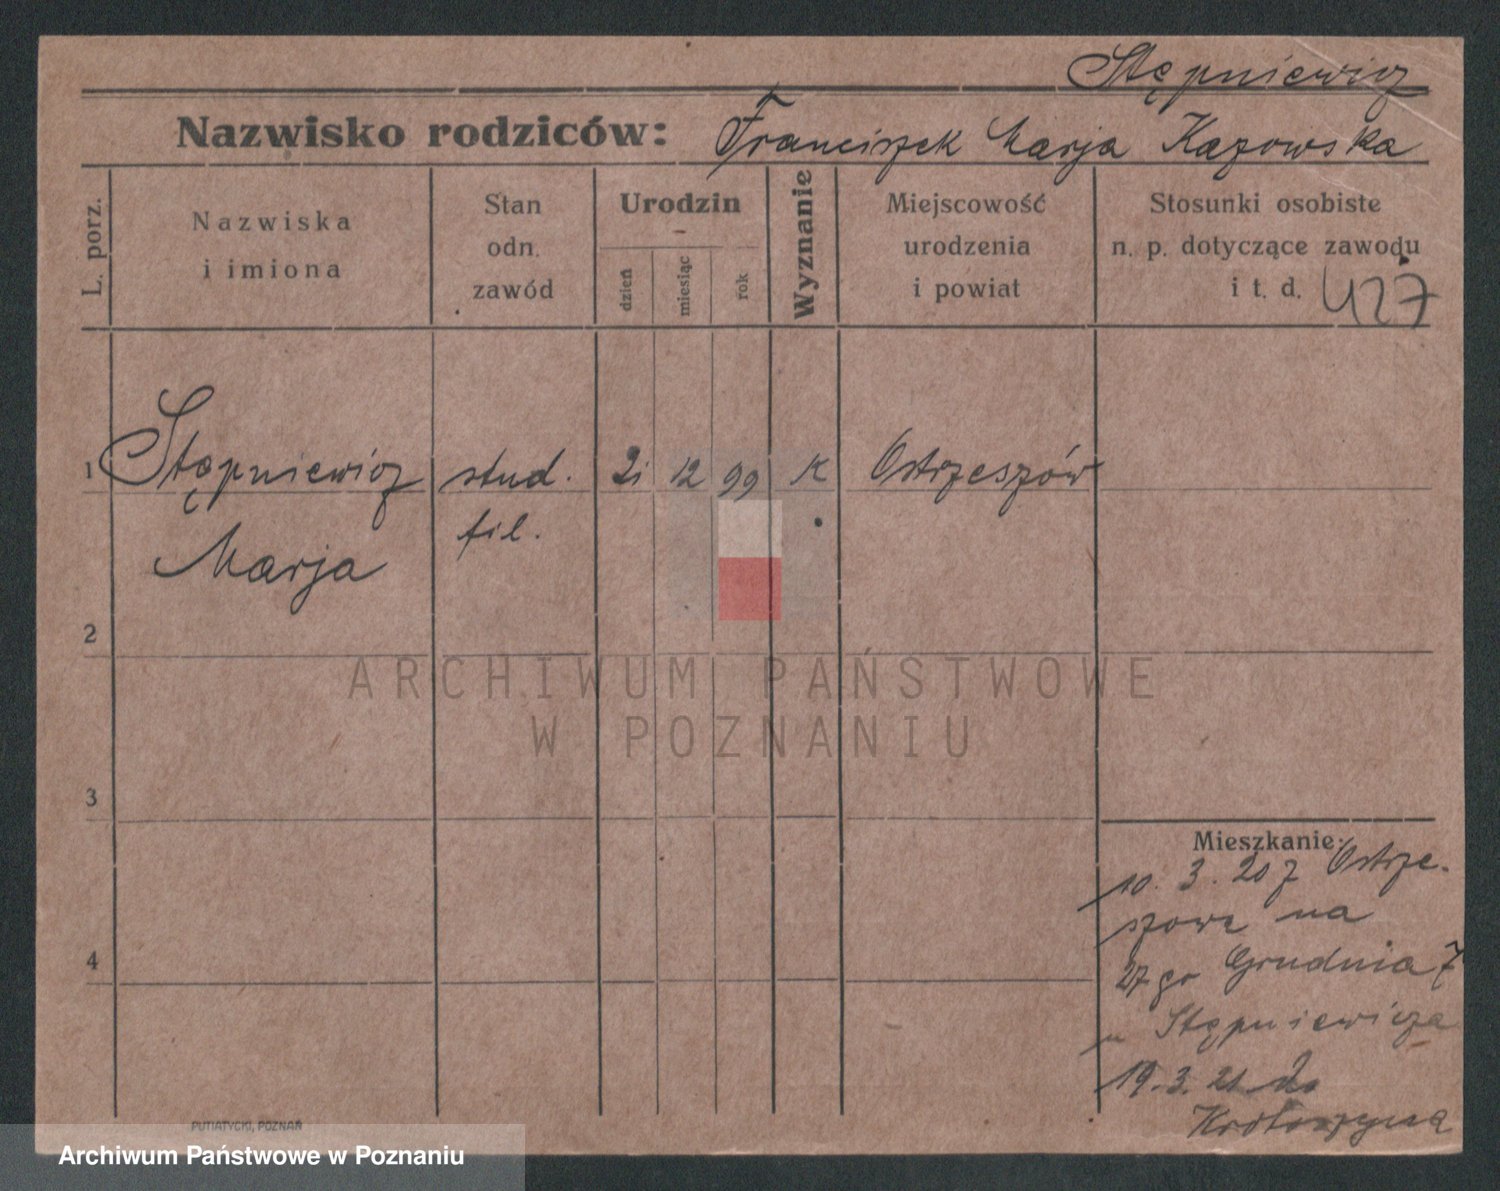 Stępniewicz
Nazwisko rodziców: Franciszek Marja Kazowska
L. porz.
Nazwiska
i imiona
Stan
odn.
zawód
Urodzin
dzień
miesiąc
rok
Wyznanie
Miejscowość
urodzenia
i powiat
Stosunki osobiste
n. p. dotyczące zawodu
i t. d. 427
1 Stępniewicz stud. 21 12 99 K Ostrzeszów
fil.
Marja
2
ARCHIWUM PAŃSTWOWE
W POZNANIU
3
Mieszkanie:
10. 3. 20 z Ostrze-
szowa na
4
27 go Grudnia 7
u Stępniewicza
19. 3. 21 do
Krotoszyna
PUTIATYCKI, POZNAŃ
Archiwum Państwowe w Poznaniu